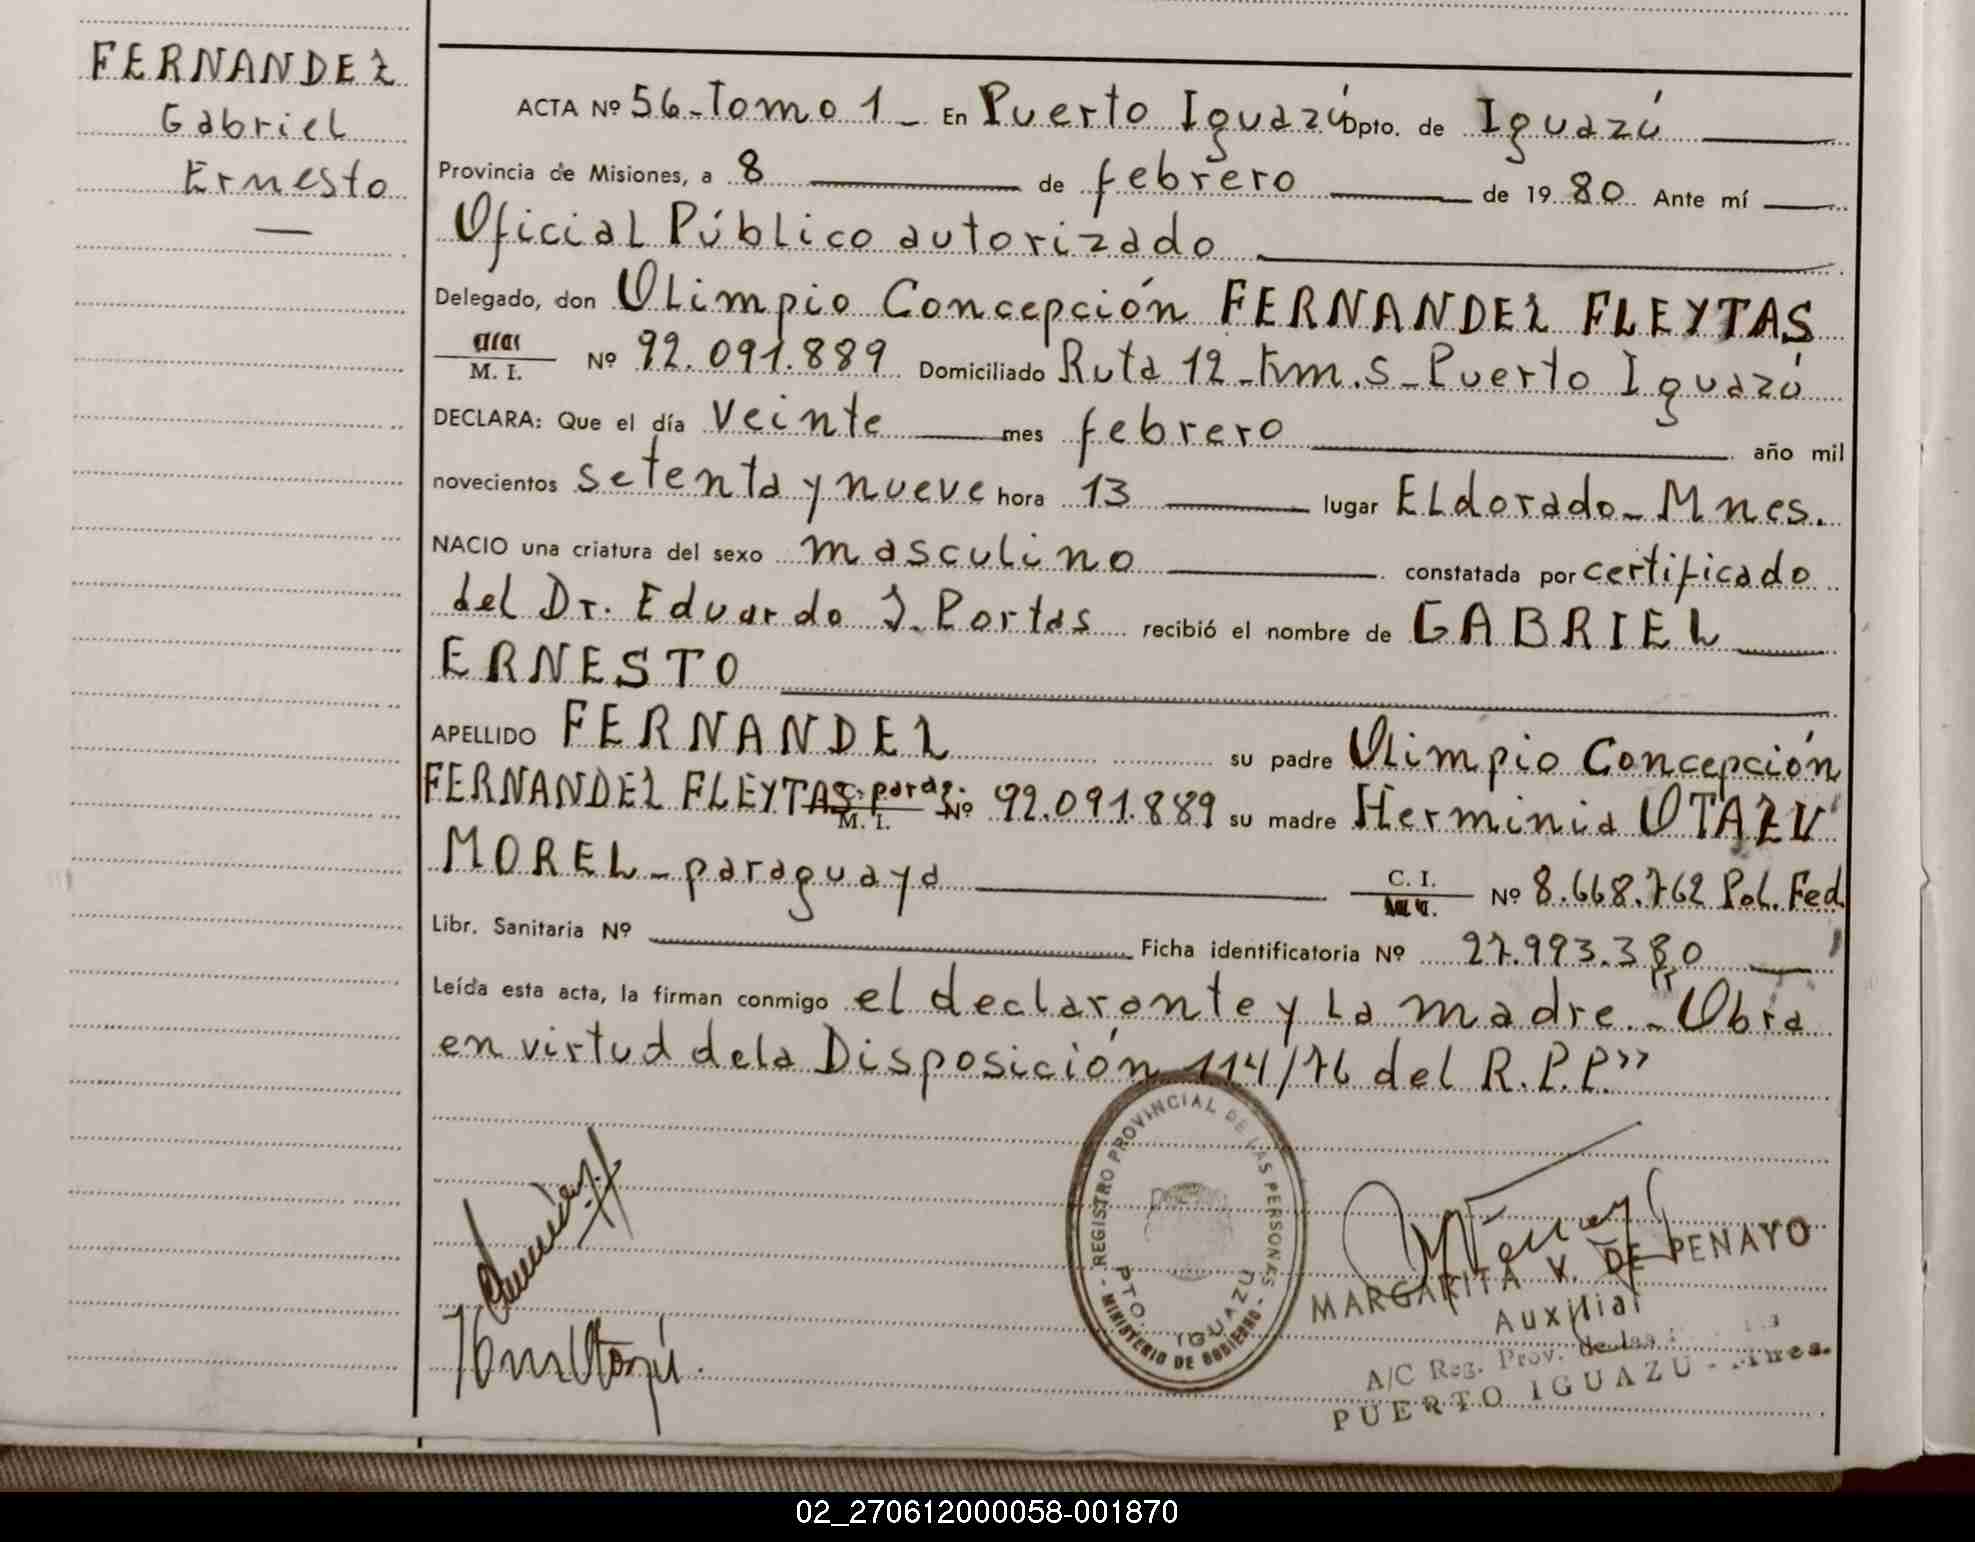 FERNANDEZ
Gabriel
Ernesto
ACTA Nº 56 - Tomo 1 - En Puerto Iguazú Dpto. de Iguazú
Provincia de Misiones, a 8 de febrero de 1980 Ante mí
Oficial Público autorizado
Delegado, don Olimpio Concepción FERNANDEZ FLEYTAS
M. I. Nº 92.091.889 Domiciliado Ruta 12 - Km. 5 - Puerto Iguazú
DECLARA: Que el día veinte mes febrero año mil
novecientos setenta y nueve hora 13 lugar Eldorado - Mnes.
NACIO una criatura del sexo masculino constatada por certificado
del Dr. Eduardo J. Portas recibió el nombre de GABRIEL
ERNESTO
APELLIDO FERNANDEZ su padre Olimpio Concepción
FERNANDEZ FLEYTAS parag. M. I. Nº 92.091.889 su madre Herminia OTAZU
MOREL - paraguaya C. I. Nº 8.668.762 Pol. Fed.
Libr. Sanitaria Nº Ficha identificatoria Nº 27.993.380
Leída esta acta, la firman conmigo el declarante y la madre. - "Obra
en virtud de la Disposición 114/76 del R.P.P."
REGISTRO PROVINCIAL DE LAS PERSONAS
PTO. IGUAZU
- MINISTERIO DE GOBIERNO -
MARGARITA V. DE PENAYO
Auxiliar
A/C Reg. Prov. de las
PUERTO IGUAZU - Mnes.
02_270612000058-001870